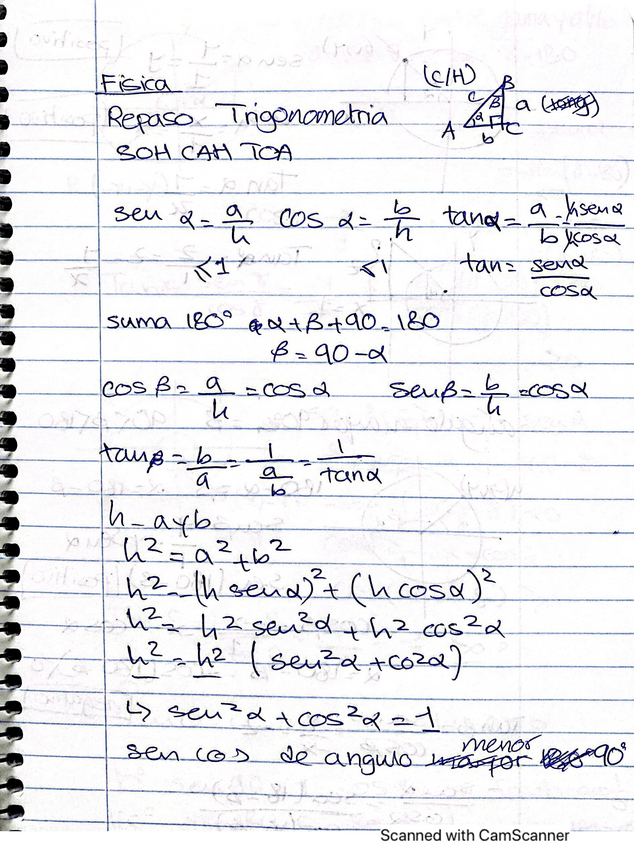 Física
(C/H)
B
Repaso Trigonometria
c B a
A α b C
SOH CAH TOA
sen α = a/h cos α = b/h tanα = a/b = h senα/h cosα
≤1 ≤1 tan = senα/cosα
suma 180° α+β+90=180
β = 90-α
cos β = a/h = cos α senβ = b/h = cosα
tanβ = b/a = 1/(a/b) = 1/tanα
h - a y b
h² = a² + b²
h² = (h senα)² + (h cosα)²
h² = h² sen²α + h² cos²α
h² = h² (sen²α + co²α)
↳ sen²α + cos²α = 1
sen cos de angulo menor 90°
Scanned with CamScanner